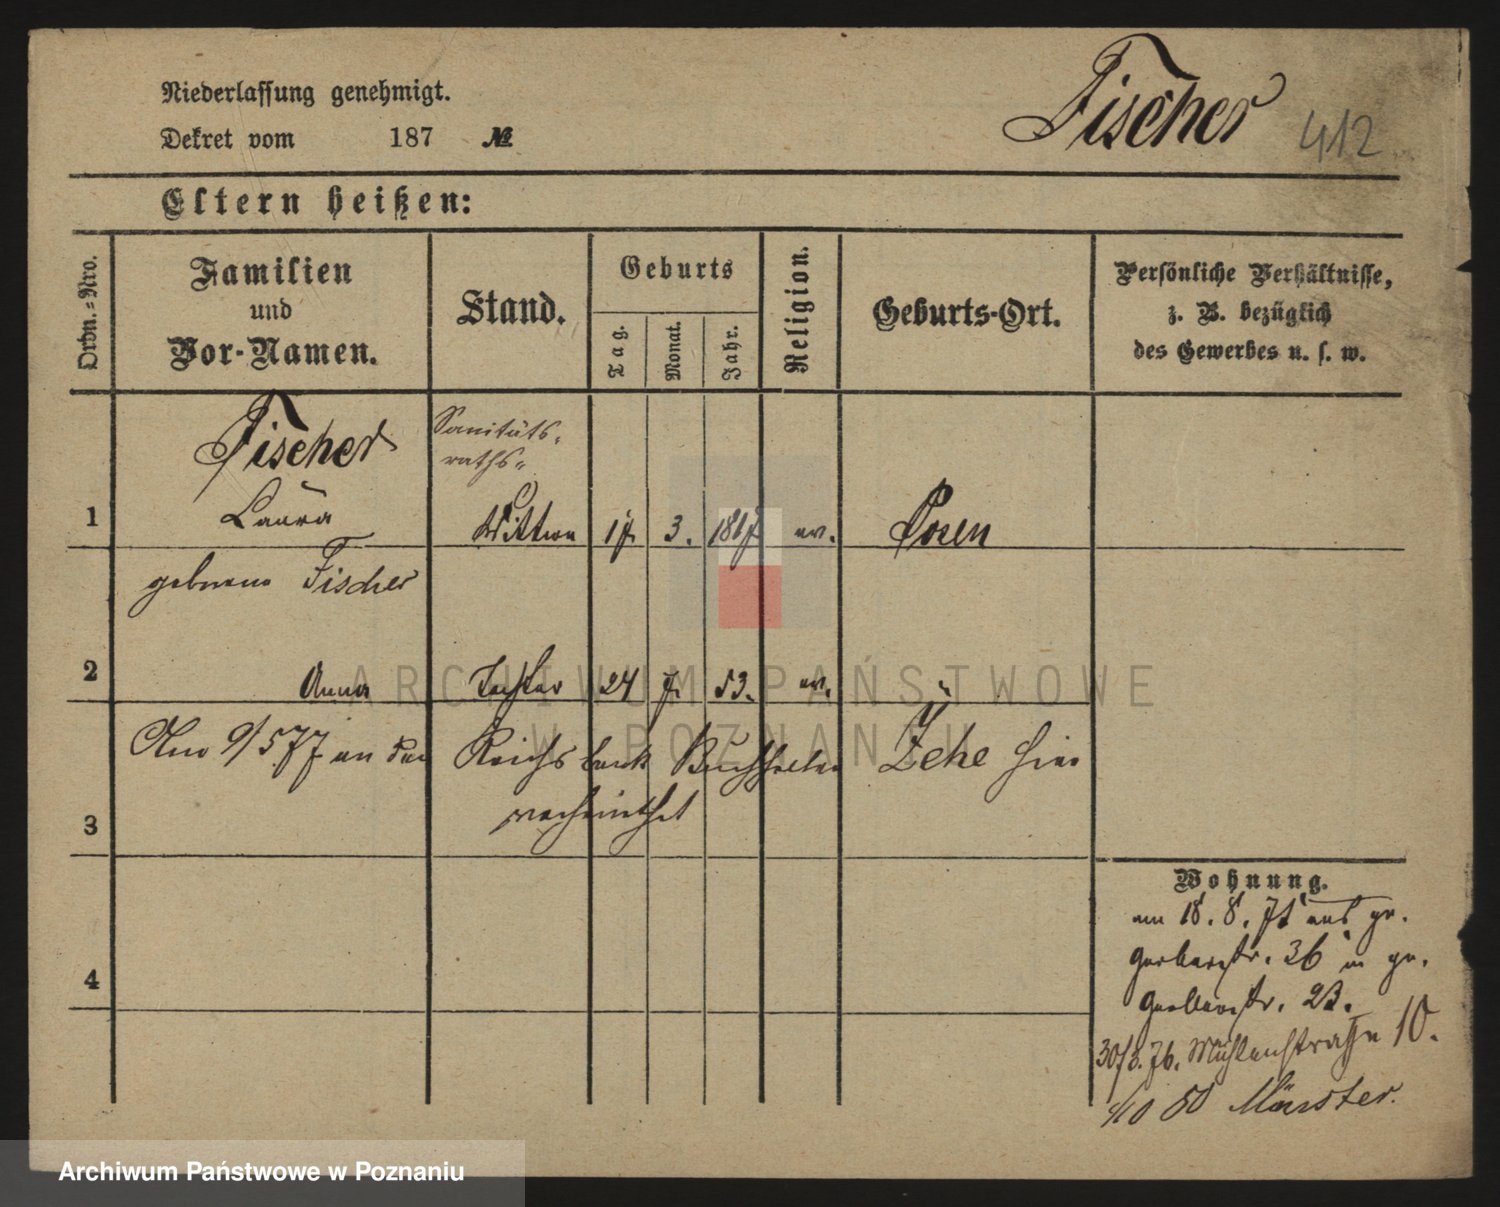 Niederlassung genehmigt.
Dekret vom 187 №
Fischer 412
Eltern heißen:
Ordn.-Nro.
Familien
und
Vor-Namen.
Stand.
Geburts
Tag.
Monat.
Jahr.
Religion.
Geburts-Ort.
Persönliche Verhältnisse,
z. B. bezüglich
des Gewerbes u. s. w.
Fischer Sanitäts-
raths-
1 Laura Wittwe 17. 3. ev. Posen
geborene Fischer
2 Anna Tochter 24 7. 53. ev. "
Am 9/5 77 an den Reichsbank Buchhalter Zehe hier
verheirathet
3
4
Wohnung.
am 18. 8. aus gr.
Gerberstr. 36 in gr.
Gerberstr. 23.
30/3. 76. Mühlenstraße 10.
80 Münster.
ARCHIWUM PAŃSTWOWE
W POZNANIU
Archiwum Państwowe w Poznaniu